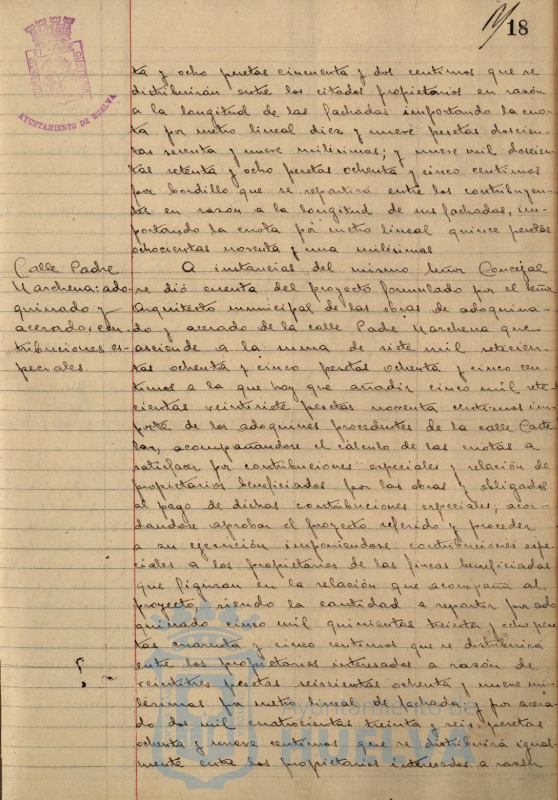 18
AYUNTAMIENTO DE HUELVA
ta y ocho pesetas cincuenta y dos centimos que se
distribuirán entre los citados propietarios en razón
a la longitud de las fachadas importando la cuo-
ta por metro lineal diez y nueve pesetas doscien-
tas setenta y nueve milésimas; y nueve mil doscien-
tas setenta y ocho pesetas ochenta y cinco centimos
por bordillo que se repartirá entre los contribuyen-
tes en razón a la longitud de sus fachadas, im-
portando la cuota por metro lineal quince pesetas
ochocientas noventa y una milésimas
Calle Padre
Marchena: ado-
quinado y
acerado: con-
tribuciones es-
peciales.
A instancias del mismo Señor Concejal
se dió cuenta del proyecto formulado por el Señor
Arquitecto municipal de las obras de adoquina-
do y acerado de la calle Padre Marchena que
asciende a la suma de siete mil setecien-
tas ochenta y cinco pesetas ochenta y cinco cen-
timos a la que hay que añadir cinco mil sete-
cientas veintisiete pesetas noventa centimos im-
porte de los adoquines procedentes de la calle Caste
lar, acompañandose el cálculo de las cuotas a
satisfacer por contribuciones especiales y relación de
propietarios beneficiados por las obras y obligados
al pago de dichas contribuciones especiales; acor-
dandose aprobar el proyecto referido y proceder
a su ejecución imponiendose contribuciones espe-
ciales a los propietarios de las fincas beneficiadas
que figuran en la relación que acompaña al
proyecto, siendo la cantidad a repartir por ado
quinado cinco mil quinientas treinta y ocho pese
tas cuarenta y cinco centimos que se distribuirá
entre los propietarios interesados a razón de
veintitres pesetas seiscientas ochenta y nueve mi-
lésimas por metro lineal de fachada y por acera-
do dos mil cuatrocientas treinta y seis pesetas
ochenta y nueve centimos que se distribuirá igual
mente entre los propietarios interesados a razón
Ayuntamiento de
HUELVA